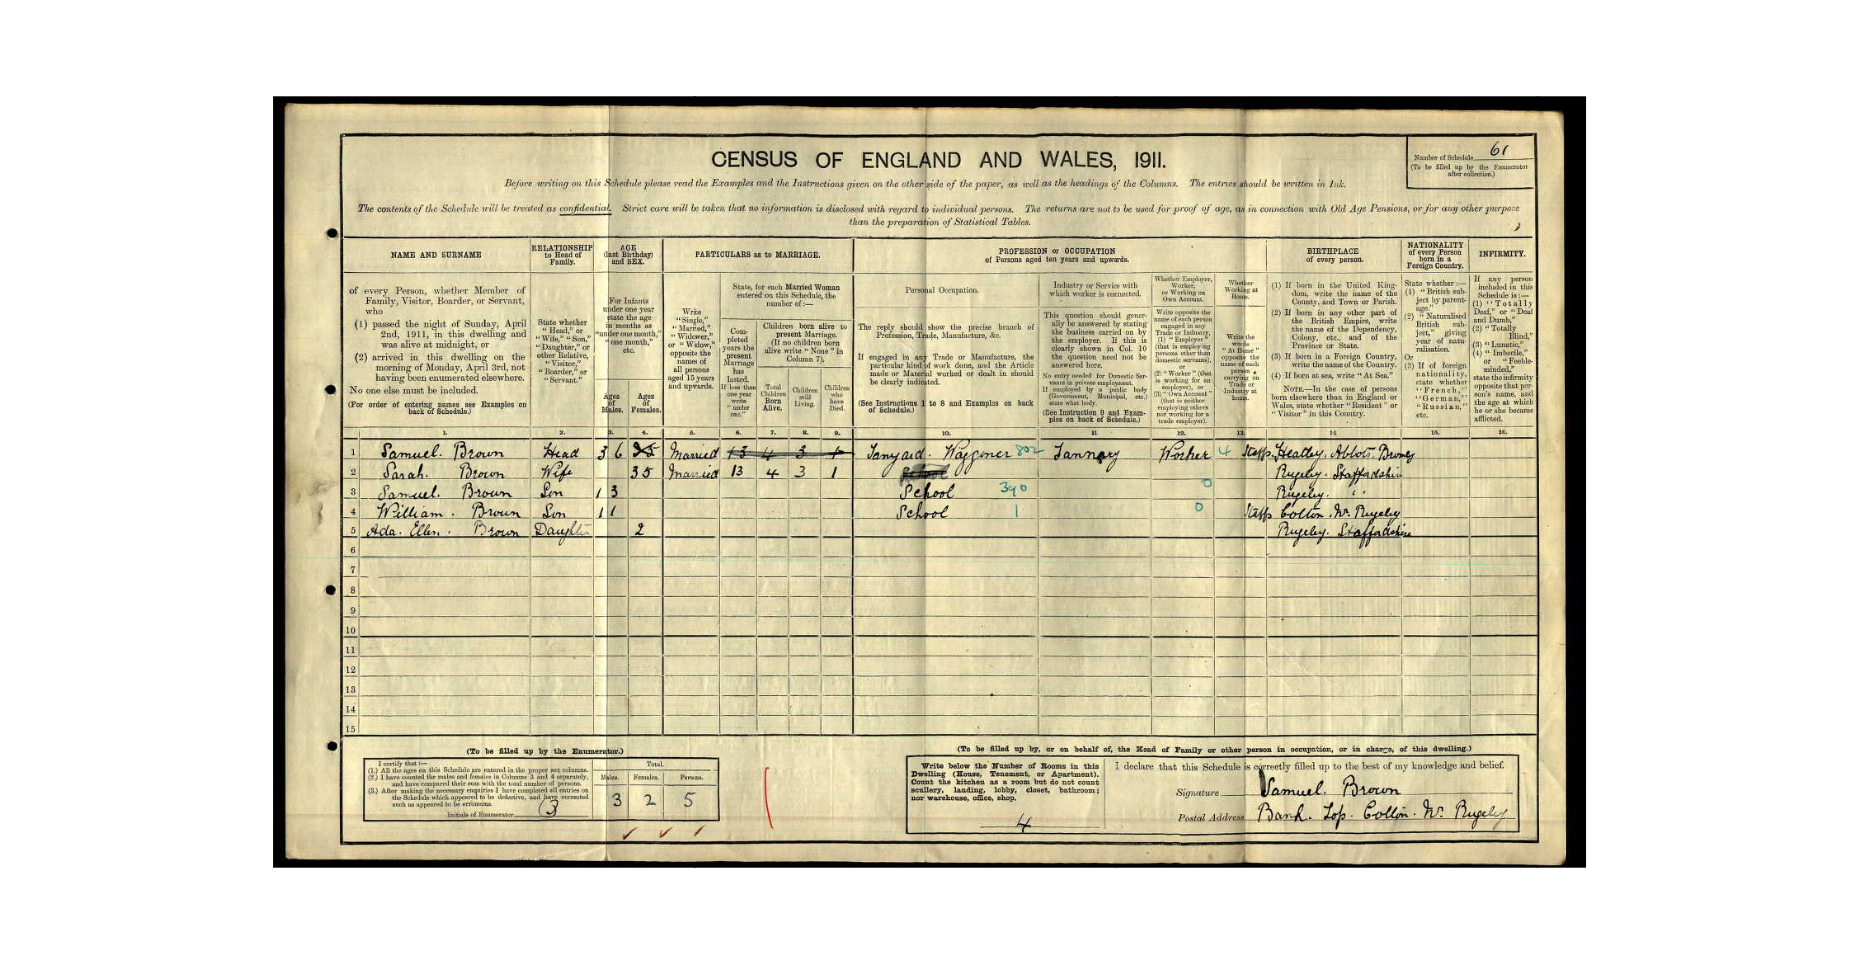 CENSUS OF ENGLAND AND WALES, 1911.
Number of Schedule 61
(To be filled up by the Enumerator
after collection.)
Before writing on this Schedule please read the Examples and the Instructions given on the other side of the paper, as well as the headings of the Columns. The entries should be written in Ink.
The contents of the Schedule will be treated as confidential. Strict care will be taken that no information is disclosed with regard to individual persons. The returns are not to be used for proof of age, as in connection with Old Age Pensions, or for any other purpose
than the preparation of Statistical Tables.
NAME AND SURNAME
of every Person, whether Member of
Family, Visitor, Boarder, or Servant,
who
(1) passed the night of Sunday, April
2nd, 1911, in this dwelling and
was alive at midnight, or
(2) arrived in this dwelling on the
morning of Monday, April 3rd, not
having been enumerated elsewhere.
No one else must be included.
(For order of entering names see Examples on
back of Schedule.)
RELATIONSHIP
to Head of
Family.
State whether
"Head," or
"Wife," "Son,"
"Daughter," or
other Relative,
"Visitor,"
"Boarder," or
"Servant."
AGE
(last Birthday)
and SEX.
For Infants
under one year
state the age
in months as
"under one month,"
"one month,"
etc.
Ages
of
Males.
Ages
of
Females.
PARTICULARS as to MARRIAGE.
Write
"Single,"
"Married,"
"Widower,"
or "Widow,"
opposite the
names of
all persons
aged 15 years
and upwards.
State, for each Married Woman
entered on this Schedule, the
number of:—
Completed
years the
present
Marriage
has
lasted.
If less than
one year
write
"under
one."
Children born alive to
present Marriage.
(If no children born
alive write "None" in
Column 7).
Total
Children
Born
Alive.
Children
still
Living.
Children
who
have
Died.
PROFESSION or OCCUPATION
of Persons aged ten years and upwards.
Personal Occupation.
The reply should show the precise branch of
Profession, Trade, Manufacture, &c.
If engaged in any Trade or Manufacture, the
particular kind of work done, and the Article
made or Material worked or dealt in should
be clearly indicated.
(See Instructions 1 to 8 and Examples on back
of Schedule.)
Industry or Service with
which worker is connected.
This question should generally
be answered by stating
the business carried on by
the employer. If this is
clearly shown in Col. 10
the question need not be
answered here.
No entry needed for Domestic Servants
in private employment.
If employed by a public body
(Government, Municipal, etc.)
state what body.
(See Instruction 9 and Examples
on back of Schedule.)
Whether Employer,
Worker,
or Working on
Own Account.
Write opposite the
name of each person
engaged in any
Trade or Industry,
(1) "Employer"
(that is employing
persons other than
domestic servants),
or
(2) "Worker" (that
is working for an
employer), or
(3) "Own Account"
(that is neither
employing others
nor working for a
trade employer).
Whether
Working at
Home.
Write the
words
"At Home"
opposite the
name of each
person
carrying on
Trade or
Industry at
home.
BIRTHPLACE
of every person.
(1) If born in the United Kingdom,
write the name of the
County, and Town or Parish.
(2) If born in any other part of
the British Empire, write
the name of the Dependency,
Colony, etc., and of the
Province or State.
(3) If born in a Foreign Country,
write the name of the Country.
(4) If born at sea, write "At Sea."
NOTE.—In the case of persons
born elsewhere than in England or
Wales, state whether "Resident" or
"Visitor" in this Country.
NATIONALITY
of every Person
born in a
Foreign Country.
State whether:—
(1) "British subject
by parentage,"
(2) "Naturalised
British subject,"
giving
year of naturalisation.
Or
(3) If of foreign
nationality,
state whether
"French,"
"German,"
"Russian,"
etc.
INFIRMITY.
If any person
included in this
Schedule is:—
(1) "Totally
Deaf," or "Deaf
and Dumb,"
(2) "Totally
Blind,"
(3) "Lunatic,"
(4) "Imbecile,"
or "Feeble-minded,"
state the infirmity
opposite that person's
name, and
the age at which
he or she became
afflicted.
1. 2. 3. 4. 5. 6. 7. 8. 9. 10. 11. 12. 13. 14. 15. 16.
1 Samuel. Brown Head 36 35 Married 13 4 3 1 Tanyard. Waggoner 802 Tannary Worker 4 Staffs. Heatley. Abbots. Bromey
2 Sarah. Brown Wife 35 Married 13 4 3 1 School Rugeley. Staffordshire
3 Samuel. Brown Son 13 School 390 0 Rugeley. "
4 William. Brown Son 11 School 1 0 Staffs Colton. Nr. Rugeley
5 Ada. Ellen. Brown Daughter 2 Rugeley. Staffordshire
6
7
8
9
10
11
12
13
14
15
(To be filled up by the Enumerator.)
I certify that:—
(1.) All the ages on this Schedule are entered in the proper sex columns.
(2.) I have counted the males and females in Columns 3 and 4 separately,
and have compared their sum with the total number of persons.
(3.) After making the necessary enquiries I have completed all entries on
the Schedule which appeared to be defective, and have corrected
such as appeared to be erroneous.
Initials of Enumerator
Total.
Males. Females. Persons.
3 2 5
(To be filled up by, or on behalf of, the Head of Family or other person in occupation, or in charge, of this dwelling.)
Write below the Number of Rooms in this
Dwelling (House, Tenement, or Apartment).
Count the kitchen as a room but do not count
scullery, landing, lobby, closet, bathroom;
nor warehouse, office, shop.
4
I declare that this Schedule is correctly filled up to the best of my knowledge and belief.
Signature Samuel. Brown
Postal Address Bank. Top. Colton. Nr. Rugeley